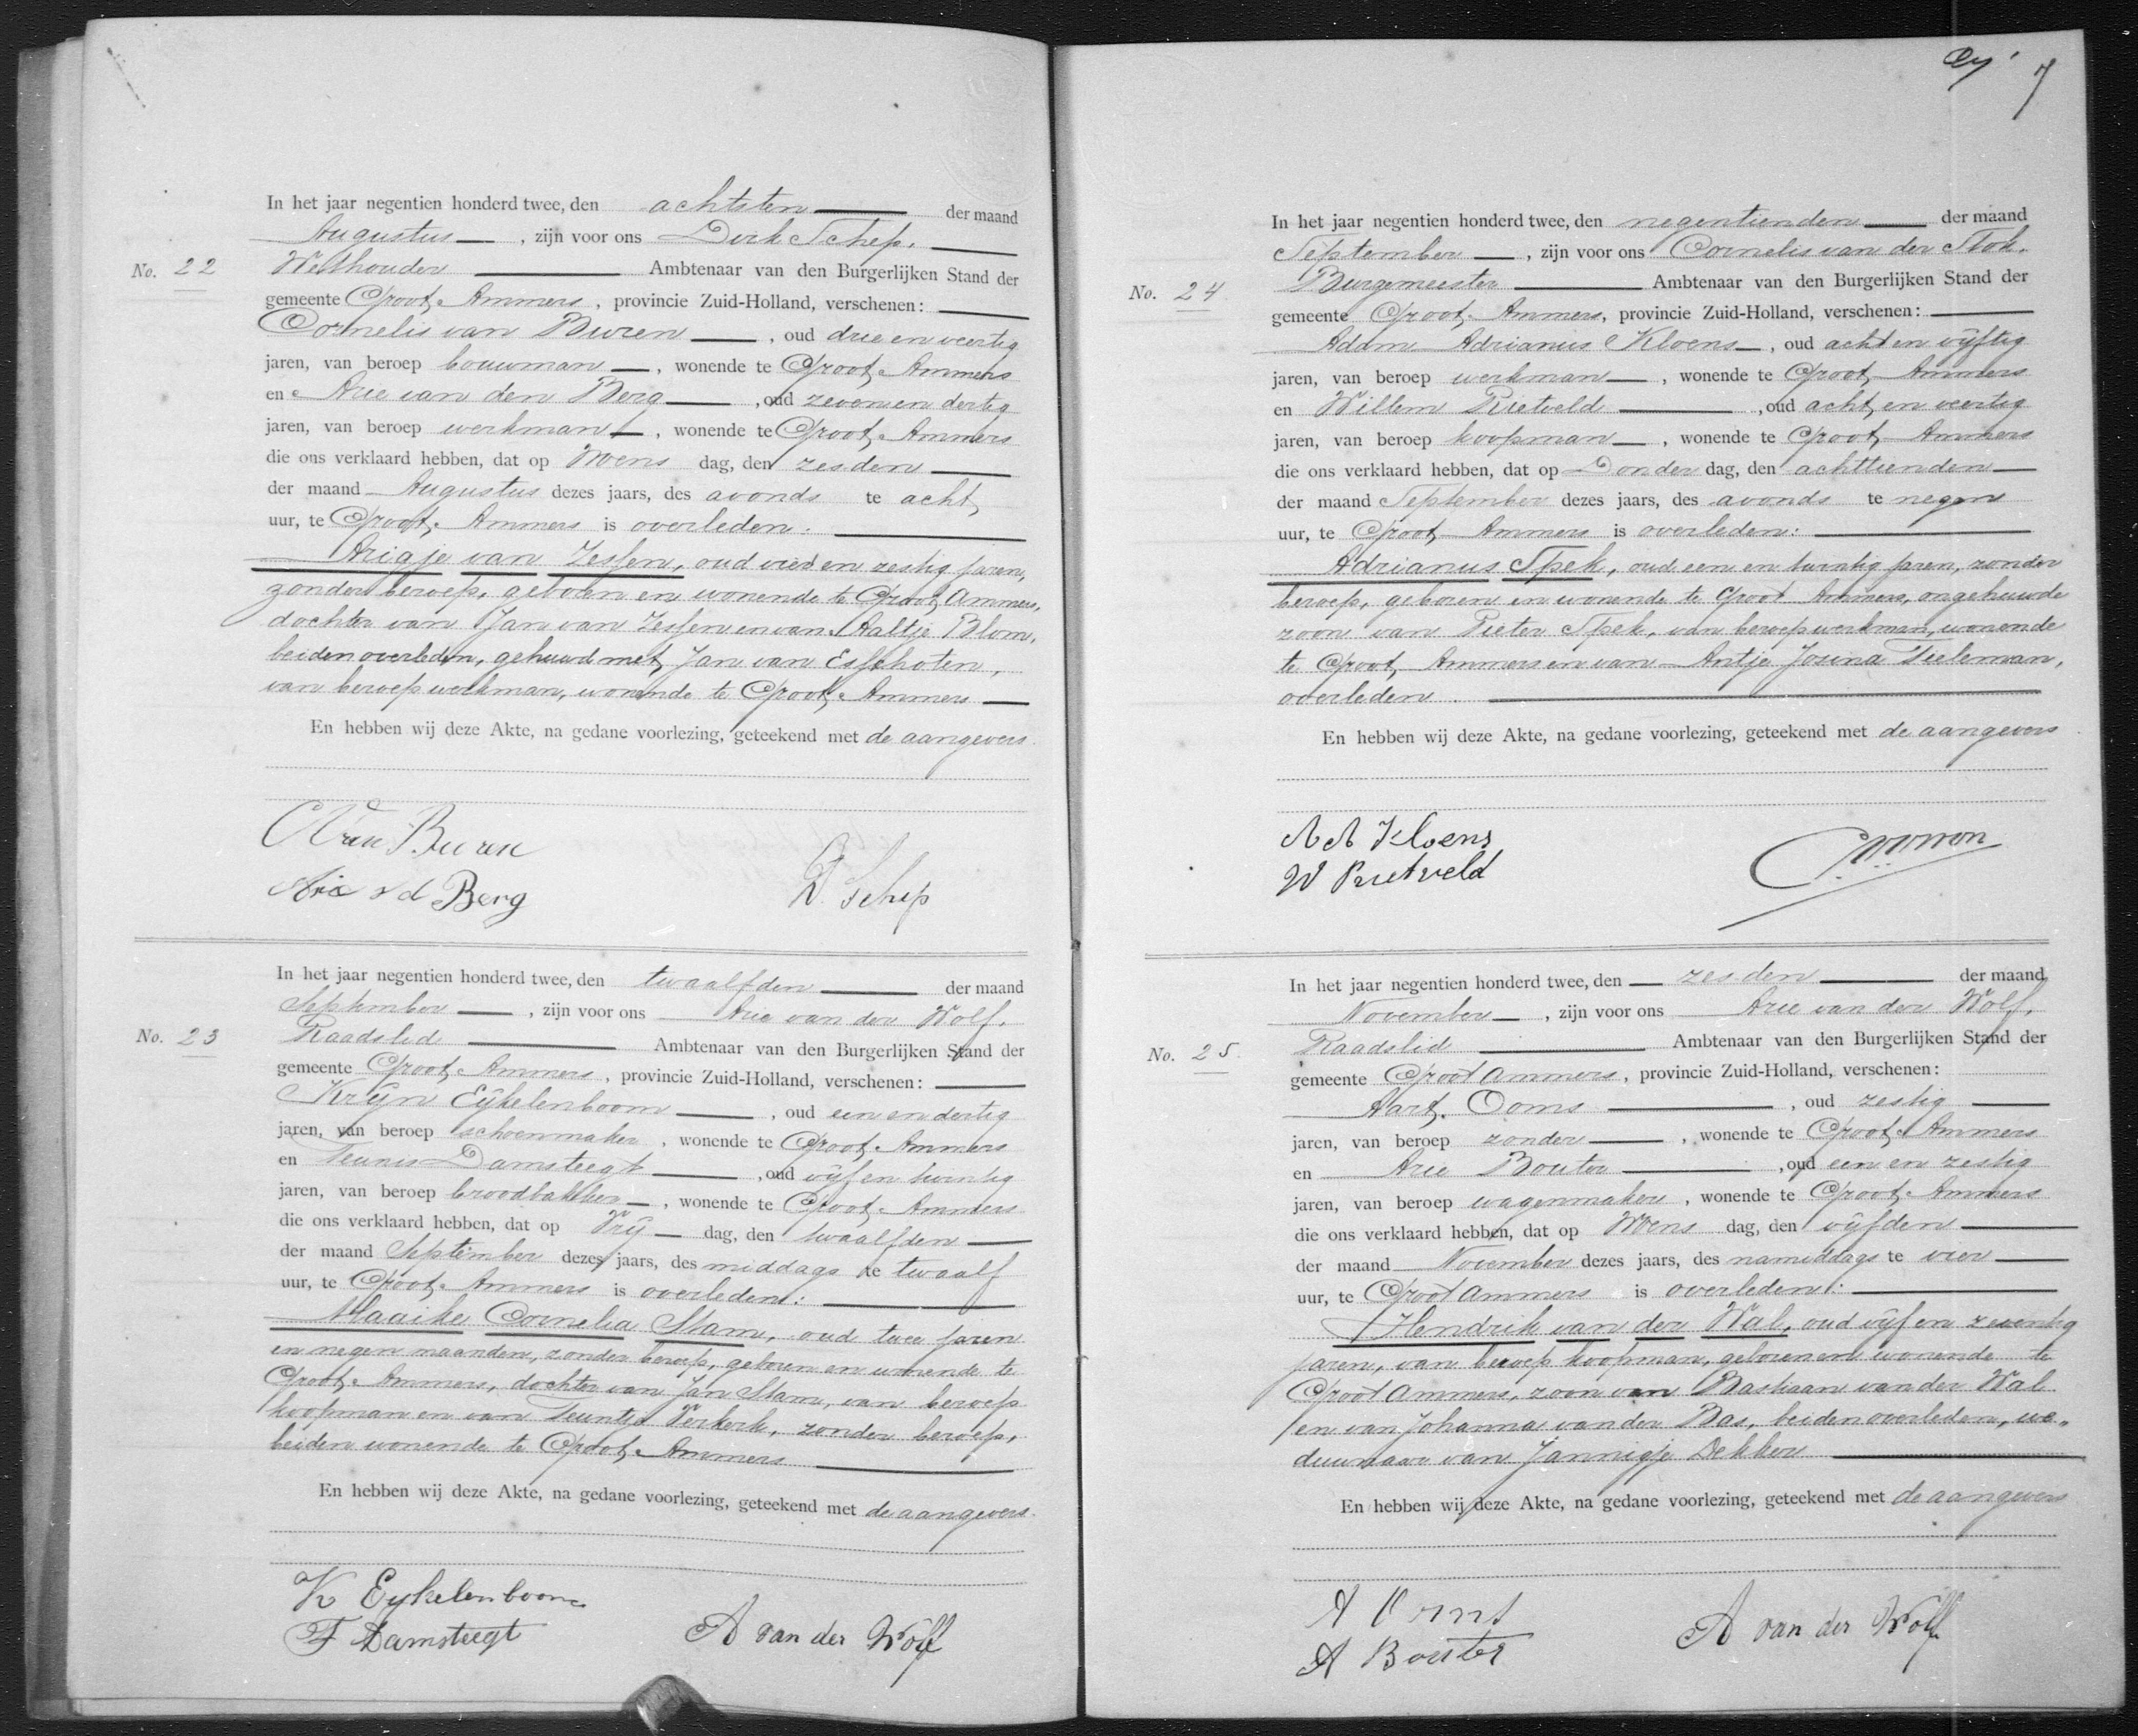 In het jaar negentien honderd twee, den achtsten der maand
Augustus, zijn voor ons Dirk Schep,
No. 22
Wethouder Ambtenaar van den Burgerlijken Stand der
gemeente Groot-Ammers, provincie Zuid-Holland, verschenen:
Cornelis van Buren, oud drie en veertig
jaren, van beroep bouwman, wonende te Groot-Ammers
en Arie van den Berg, oud zeven en dertig
jaren, van beroep werkman, wonende te Groot-Ammers
die ons verklaard hebben, dat op Woens dag, den zesden
der maand Augustus dezes jaars, des avonds te acht
uur, te Groot-Ammers is overleden:
Arigje van Zessen, oud vier en zestig jaren,
zonder beroep, geboren en wonende te Groot-Ammers,
dochter van Jan van Zessen en van Aaltje Blom,
beiden overleden, gehuwd met Jan van Esschoten,
van beroep werkman, wonende te Groot-Ammers
En hebben wij deze Akte, na gedane voorlezing, geteekend met de aangevers.
C Van Buren
Arie v d Berg
D. Schep
In het jaar negentien honderd twee, den twaalfden der maand
September, zijn voor ons Arie van der Wolf,
No. 23
Raadslid Ambtenaar van den Burgerlijken Stand der
gemeente Groot-Ammers, provincie Zuid-Holland, verschenen:
Krijn Eijkelenboom, oud een en dertig
jaren, van beroep schoenmaker, wonende te Groot-Ammers
en Teunis Damsteegt, oud vijf en twintig
jaren, van beroep broodbakker, wonende te Groot-Ammers
die ons verklaard hebben, dat op Vrij dag, den twaalfden
der maand September dezes jaars, des middags te twaalf
uur, te Groot-Ammers is overleden:
Maaike Cornelia Stam, oud twee jaren
en negen maanden, zonder beroep, geboren en wonende te
Groot-Ammers, dochter van Jan Stam, van beroep
koopman en van Teuntje Verkerk, zonder beroep,
beiden wonende te Groot-Ammers
En hebben wij deze Akte, na gedane voorlezing, geteekend met de aangevers.
K Eykelenboom
T Damsteegt
A van der Wolf
7
In het jaar negentien honderd twee, den negentienden der maand
September, zijn voor ons Cornelis van der Stok,
No. 24
Burgemeester Ambtenaar van den Burgerlijken Stand der
gemeente Groot-Ammers, provincie Zuid-Holland, verschenen:
Adam Adrianus Kloens, oud acht en vijftig
jaren, van beroep werkman, wonende te Groot-Ammers
en Willem Rietveld, oud acht en veertig
jaren, van beroep koopman, wonende te Groot-Ammers
die ons verklaard hebben, dat op Donder dag, den achttienden
der maand September dezes jaars, des avonds te negen
uur, te Groot-Ammers is overleden:
Adrianus Spek, oud een en twintig jaren, zonder
beroep, geboren en wonende te Groot-Ammers, ongehuwde
zoon van Pieter Spek, van beroep werkman, wonende
te Groot-Ammers en van Antje Josina Tieleman,
overleden.
En hebben wij deze Akte, na gedane voorlezing, geteekend met de aangevers
A A Kloens
W Rietveld
In het jaar negentien honderd twee, den zesden der maand
November, zijn voor ons Arie van der Wolf,
No. 25.
Raadslid Ambtenaar van den Burgerlijken Stand der
gemeente Groot Ammers, provincie Zuid-Holland, verschenen:
Aart Ooms, oud zestig
jaren, van beroep zonder, wonende te Groot-Ammers
en Arie Bouter, oud een en zestig
jaren, van beroep wagenmaker, wonende te Groot-Ammers
die ons verklaard hebben, dat op Woens dag, den vijfden
der maand November dezes jaars, des namiddags te vier
uur, te Groot Ammers is overleden:
Hendrik van der Wal, oud vijf en zeventig
jaren, van beroep koopman, geboren en wonende te
Groot Ammers, zoon van Bastiaan van der Wal
en van Johanna van der Bas, beiden overleden, we„
duwnaar van Jannigje Dekker
En hebben wij deze Akte, na gedane voorlezing, geteekend met de aangevers
A Bouter
A van der Wolf